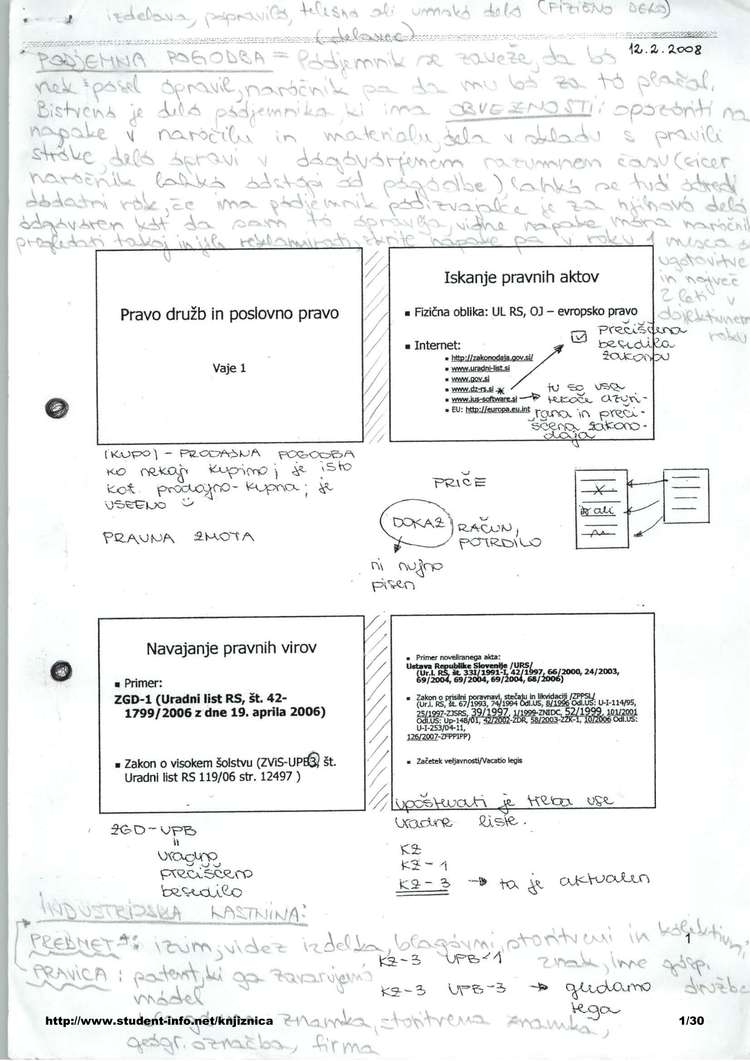 izdelava, popravilo, telesno ali umsko delo (FIZIČNO DELO)
(delavec)
12.2.2008
PODJEMNA POGODBA = Podjemnik se zaveže, da bo
nek posel opravil, naročnik pa da mu bo za to plačal.
Bistveno je delo podjemnika, ki ima OBVEZNOSTI: opozoriti na
napake v naročilu in materialu, dela v skladu s pravili
stroke, delo opravi v dogovorjenem razumnem času (sicer
naročnik lahko odstopi od pogodbe) lahko se tudi odredi
dodatni rok, če ima podjemnik podizvajalce je za njihovo delo
odgovoren kot da sam to opravlja, vidne napake mora naročnik
pregledati takoj in jih reklamirati, skrite napake pa v roku 1 meseca od
ugotovitve
in največ
2 leti v
objektivnem
roku
Pravo družb in poslovno pravo
Vaje 1
Iskanje pravnih aktov
▪ Fizična oblika: UL RS, OJ – evropsko pravo
▪ Internet:
▪ http://zakonodaja.gov.si/
▪ www.uradni-list.si
▪ www.gov.si
▪ www.dz-rs.si
▪ www.ius-software.si
▪ EU: http://europa.eu.int
prečiščena
besedila
zakonov
tu so vsa
tekoče ažuri-
rana in preči-
ščena zakono-
daja
(KUPO) - PRODAJNA POGODBA
ko nekaj kupimo; je isto
kot prodajno-kupna; je
vseeno
PRAVNA ZMOTA
PRIČE
DOKAZ
RAČUN,
POTRDILO
ni nujno
pisen
Navajanje pravnih virov
▪ Primer:
ZGD-1 (Uradni list RS, št. 42-
1799/2006 z dne 19. aprila 2006)
▪ Zakon o visokem šolstvu (ZViS-UPB3, št.
Uradni list RS 119/06 str. 12497 )
▪ Primer noveliranega akta:
Ustava Republike Slovenije /URS/
(Ur.l. RS, št. 33I/1991-I, 42/1997, 66/2000, 24/2003,
69/2004, 69/2004, 69/2004, 68/2006)
▪ Zakon o prisilni poravnavi, stečaju in likvidaciji /ZPPSL/
(Ur.l. RS, št. 67/1993, 74/1994 Odl.US, 8/1996 Odl.US: U-I-114/95,
25/1997-ZJSRS, 39/1997, 1/1999-ZNIDC, 52/1999, 101/2001
Odl.US: Up-148/01, 42/2002-ZDR, 58/2003-ZZK-1, 10/2006 Odl.US:
U-I-253/04-11,
126/2007-ZFPPIPP)
▪ Začetek veljavnosti/Vacatio legis
ZGD-UPB
uradno
prečiščeno
besedilo
upoštevati je treba vse
uradne liste.
KZ
KZ-1
KZ-3 → ta je aktualen
INDUSTRIJSKA LASTNINA:
PREDMET: izum, videz izdelka, blagovni, storitveni in kolektivni
1
KZ-3 UPB-1
znak, ime gosp. družbe
PRAVICA: patent, ki ga zavarujemo
KZ-3 UPB-3 → gledamo
tega
model
http://www.student-info.net/knjiznica
znamka, storitvena znamka,
1/30
geogr. označba, firma